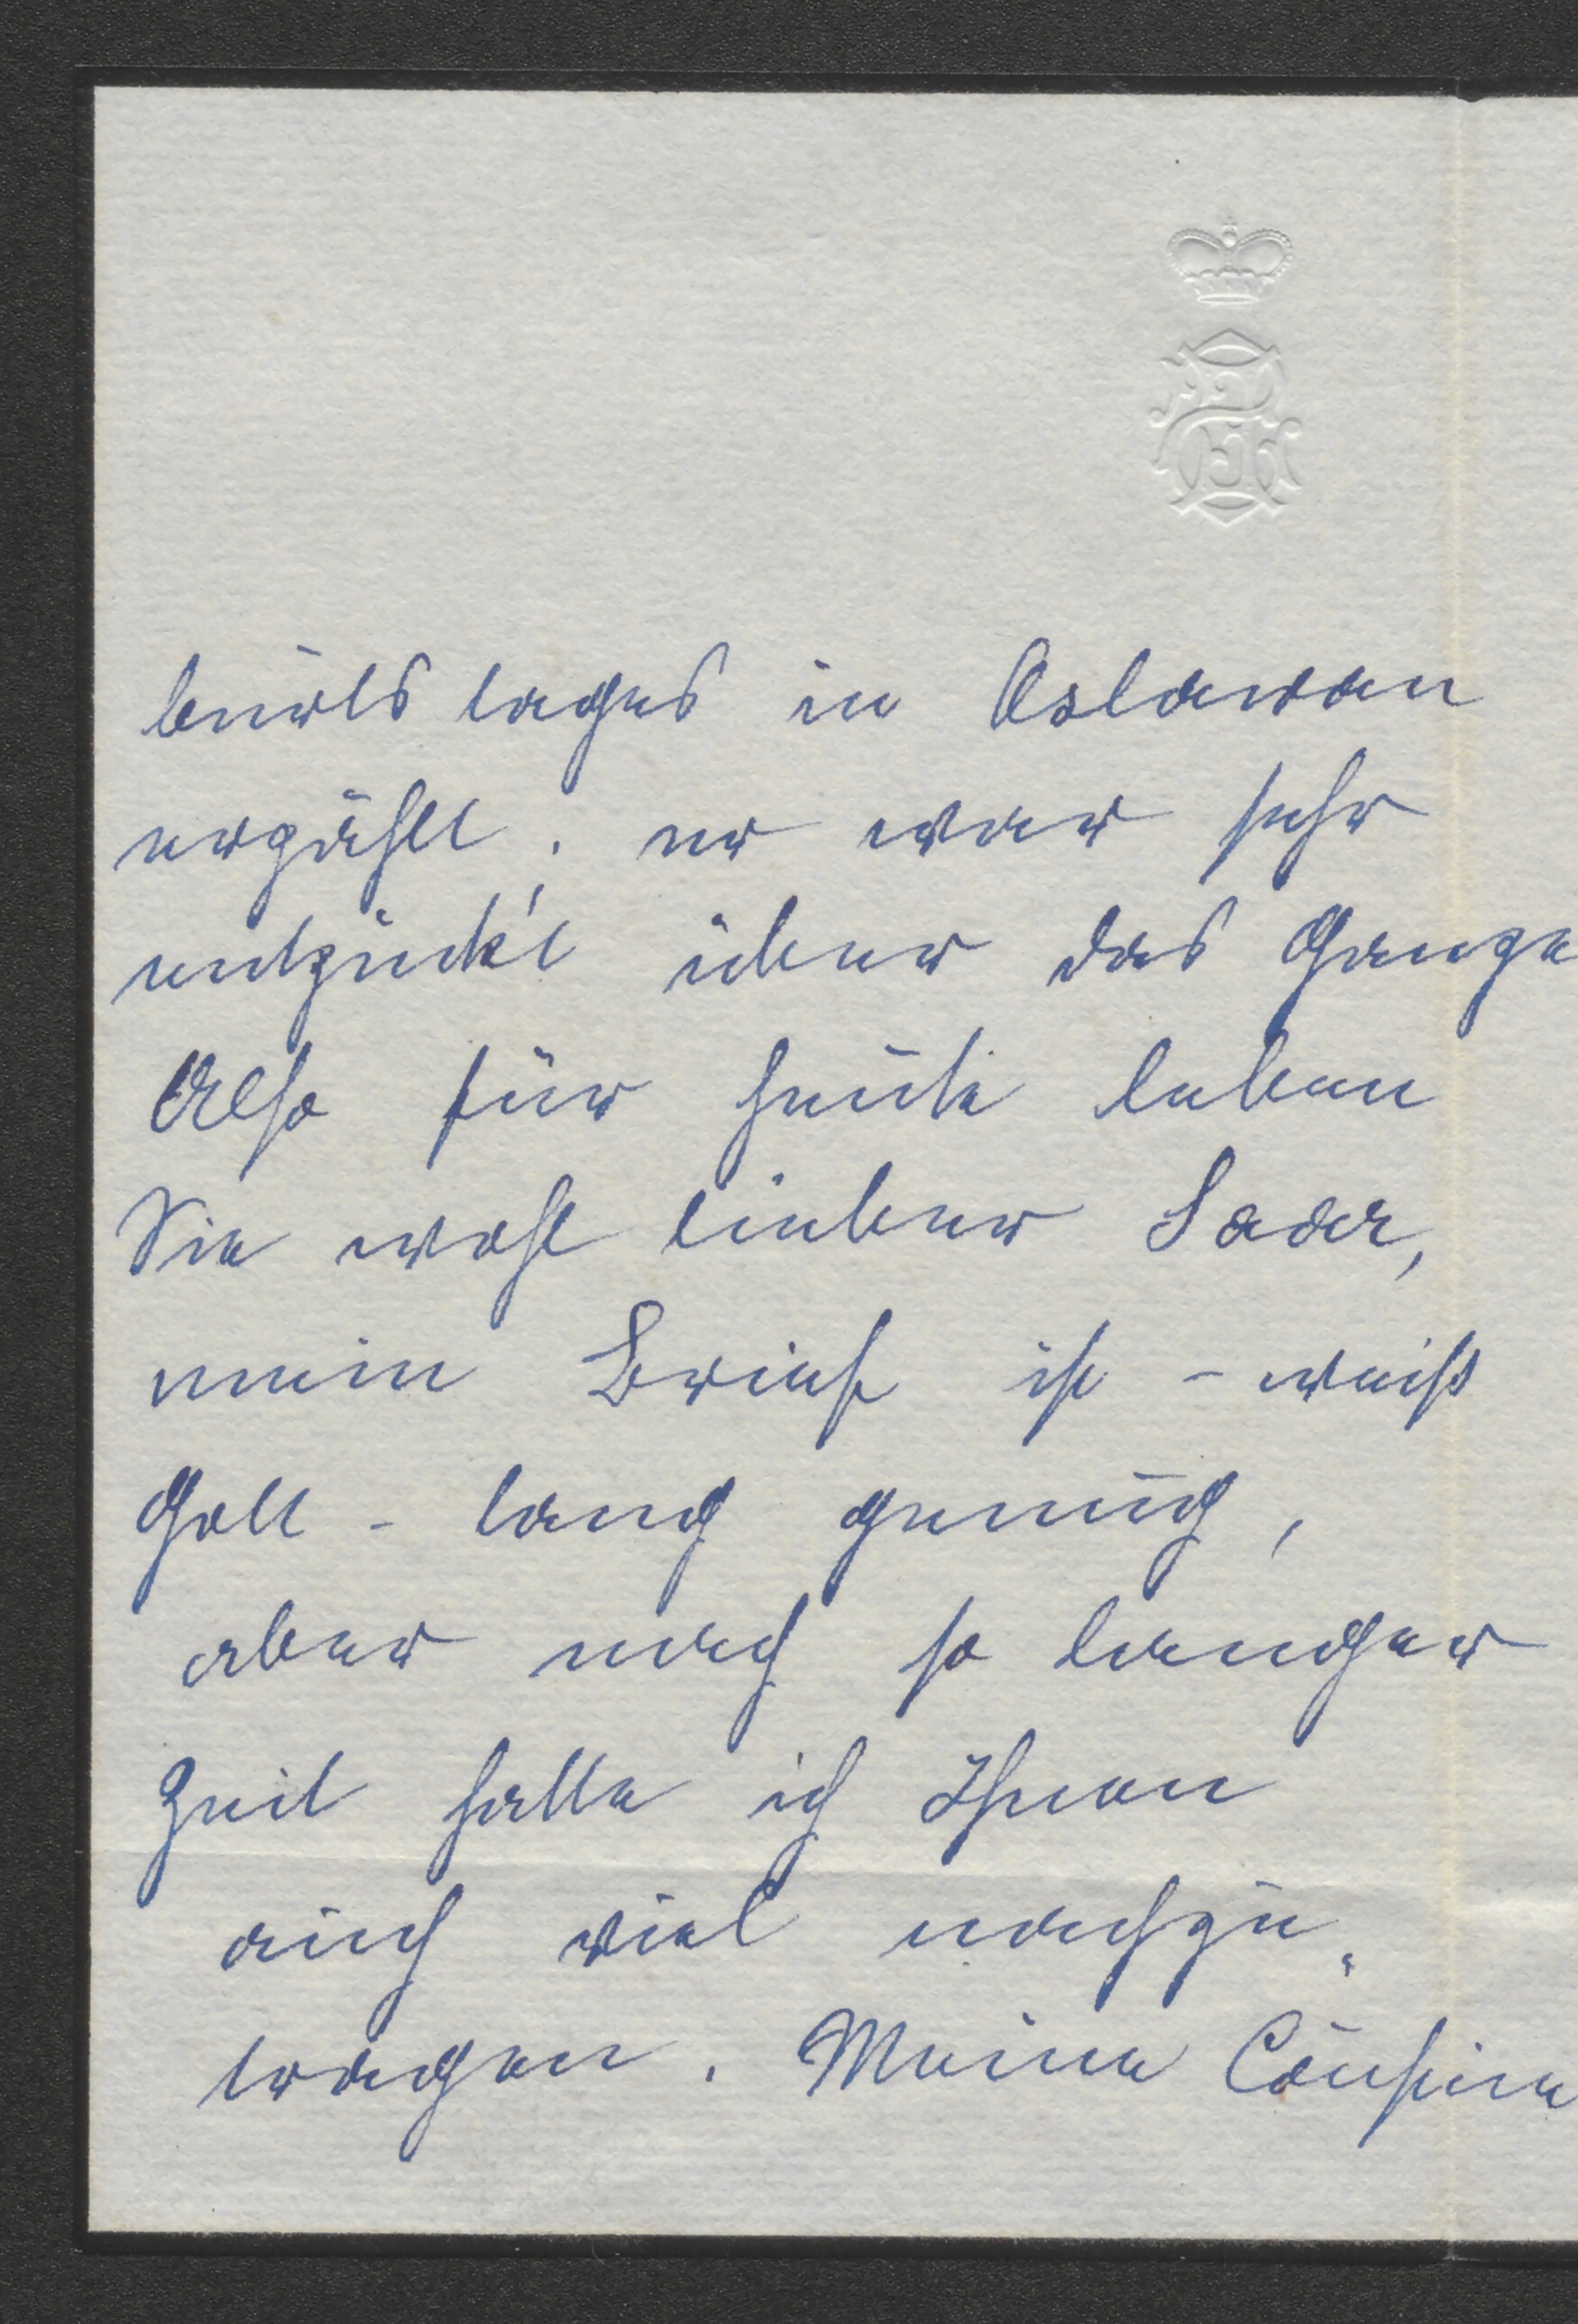 burtstages in Oslawan
erzählt; er war sehr
entzückt über das Ganze
Also für heute leben
Sie wohl lieber Saar,
mein Brief ist - weiß
Gott - lang genug,
aber nach so langer
Zeit hatte ich Ihnen
auch viel nachzu-
tragen. Meine Cousine